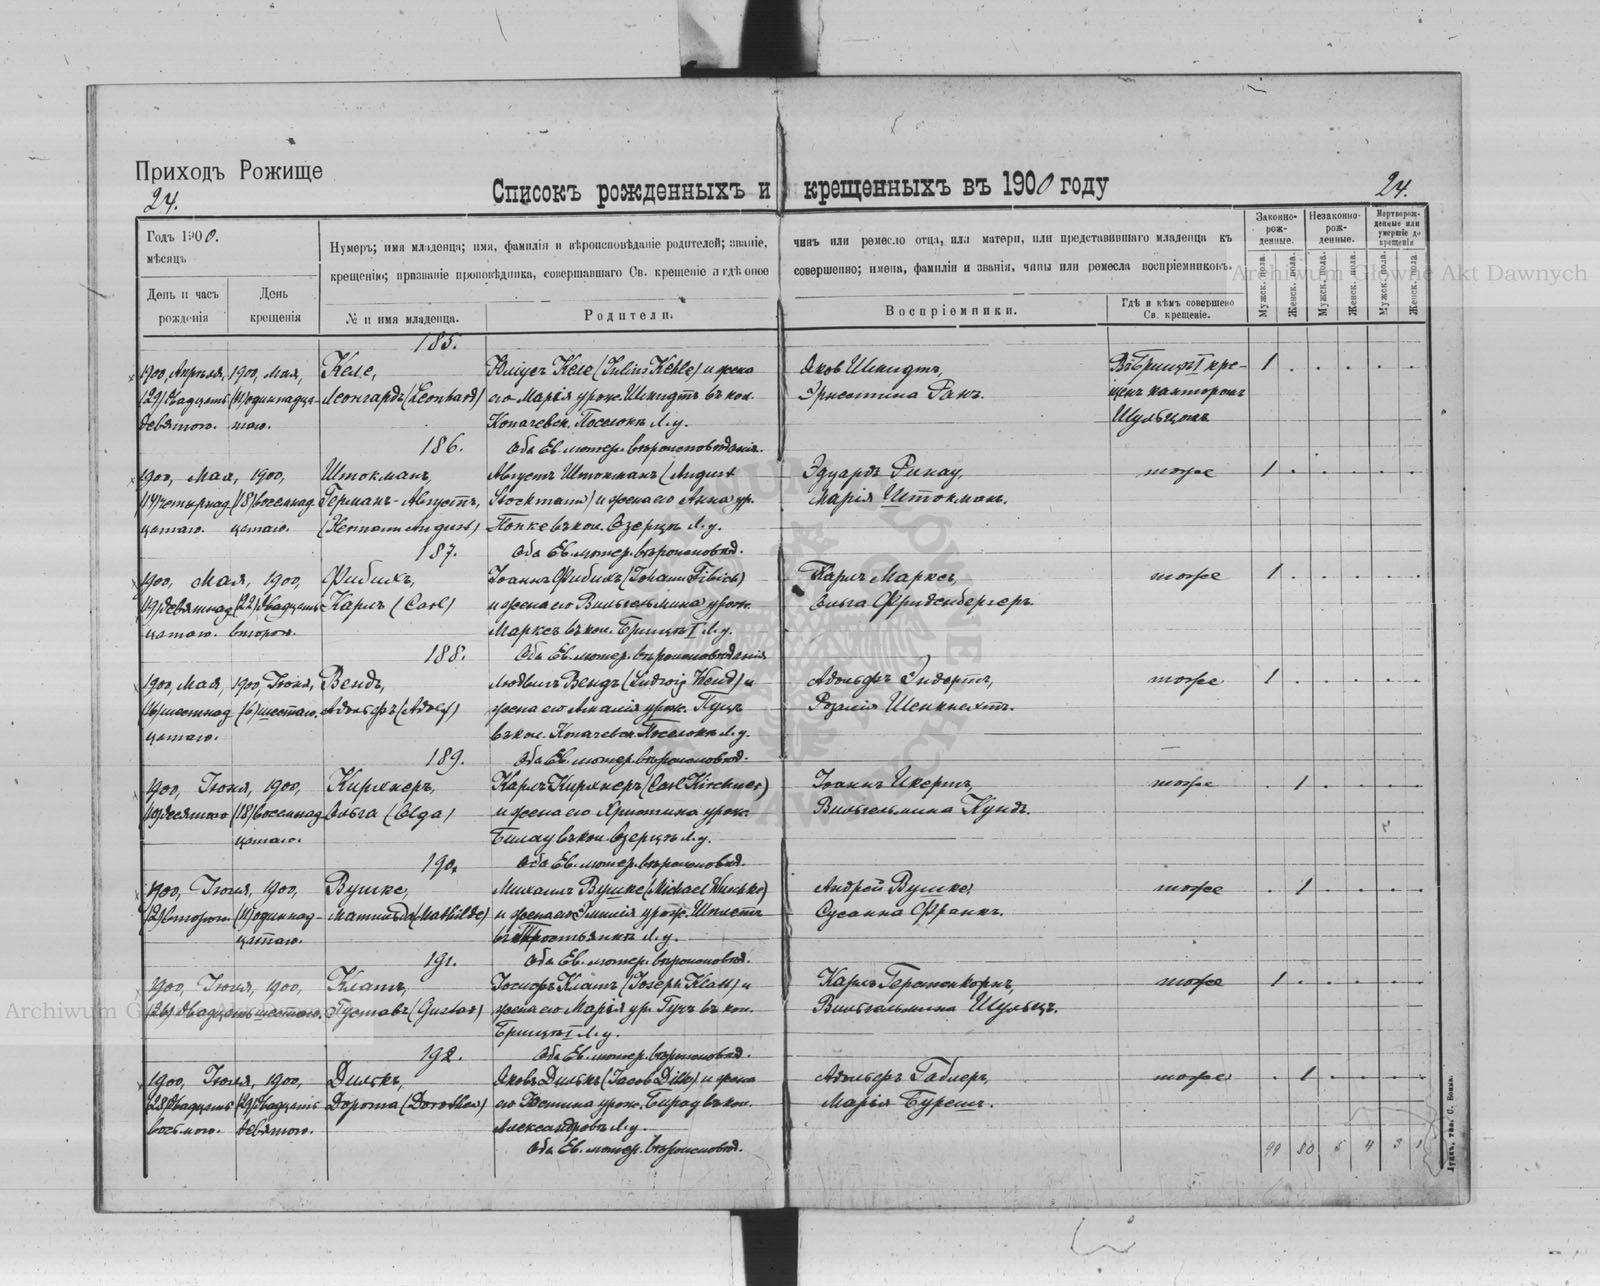 Приходъ Рожище
24.
Списокъ рожденныхъ и крещенныхъ въ 1900 году
24.
Годъ 1900.
мѣсяцъ
День и часъ рожденія
День крещенія
Нумеръ; имя младенца; имя, фамилія и вѣроисповѣданіе родителей; званіе, чинъ или ремесло отца, или матери, или представившаго младенца къ
крещенію; призваніе проповѣдника, совершавшаго Св. крещеніе и гдѣ оное совершено; имена, фамиліи и званія, чины или ремесла воспріемниковъ.
№ и имя младенца.
Родители.
Воспріемники.
Гдѣ и кѣмъ совершено Св. крещеніе.
Законно-рожденные.
Незаконно-рожденные.
Мертворожденные или умершіе до крещенія
Мужск. пола.
Женск. пола.
Мужск. пола.
Женск. пола.
Мужск. пола.
Женск. пола
Archiwum Główne Akt Dawnych
185.
1900, Апрѣля, 1900, Мая, Келе, Юліусъ Келе (Julius Kehle) и жена Яковъ Шмидтъ, Въ Брищѣ I кре- 1
(29) двадцать (11) одиннадца- Леонгардъ (Leonhard) его Марія урож. Шмидтъ въ кол. Эрнестина Ранъ. щенъ канторомъ
девятого. таго. Копачевск. Поселокъ Л. у. Шульцомъ
186. Оба Ев. лютер. вѣроисповѣданія.
1900, Мая, 1900, Штокманъ, Августъ Штокманъ (August Эдуардъ Ринау, тоже 1
(14) четырнад (18) восемнад Германъ-Августъ, Stockmann) и жена его Анна ур. Марія Штокманъ.
цатаго. цатаго. (Hermann August) Попке въ кол. Озерцѣ Л. у.
187. Оба Ев. лютер. вѣроисповѣд.
1900, Мая, 1900, Фибихъ, Іоаннъ Фибихъ (Johann Fibich) Карлъ Марксъ, тоже 1
(19) девятнад (22) двадцать Карлъ (Carl) и жена его Вильгельмина урож. Ольга Фриденбергеръ.
цатаго. второго. Марксъ въ кол. Брищѣ I Л. у.
188. Оба Ев. лютер. вѣроисповѣданія
1900, Мая, 1900, Іюня, Вендъ, Людвигъ Вендъ (Ludwig Wend) и Адольфъ тоже 1
(16) шестнад (6) шестаго. Адольфъ (Adolf) жена его Амалія урож. Пуцъ Розалія Шенкнехтъ.
цатаго. въ кол. Копачевск. Поселокъ Л. у.
189. Оба Ев. лютер. вѣроисповѣд.
1900, Іюня, 1900, Кирхнеръ, Карлъ Кирхнеръ (Carl Kirchner) Іоаннъ Икертъ, тоже 1
(10) десятого (18) восемнад Ольга (Olga) и жена его Христина урож. Вильгельмина Кундъ.
цатаго. Билау въ кол. Озерцѣ Л. у.
190. Оба Ев. лютер. вѣроисповѣд.
1900, Іюля, 1900, Вушке, Михаилъ Вушке (Michael Wuschke) Андрей Вушке, тоже 1
(2) второго. (11) одиннад- Матильда (Mathilde) и жена его Эмилія урож. Сусанна Франкъ.
цатаго. въ Тростяникѣ Л. у.
191. Оба Ев. лютер. вѣроисповѣд.
1900, Іюля, 1900, Клатъ, Іосифъ Клатъ (Joseph Klatt) и Карлъ Герстенкорнъ, тоже 1
(26) двадцать шестаго. Густавъ (Gustav) жена его Марія ур. Гухъ въ кол. Вильгельмина Шульцъ.
Брищѣ I Л. у.
192. Оба Ев. лютер. вѣроисповѣд.
1900, Іюля, 1900, Дилкъ, Яковъ Дилкъ (Jacob Dilk) и жена Адольфъ Габлеръ, тоже 1
(28) двадцать (29) двадцать Дорота (Dorothea) его Юстина урож. въ кол. Марія Бурешъ.
восьмого. девятого. Александровъ Л. у.
Оба Ев. лютер. вѣроисповѣд.
99 80 5 4 3 1
Луцкъ, тип. С. Бонка.
Archiwum Główne Akt Dawnych